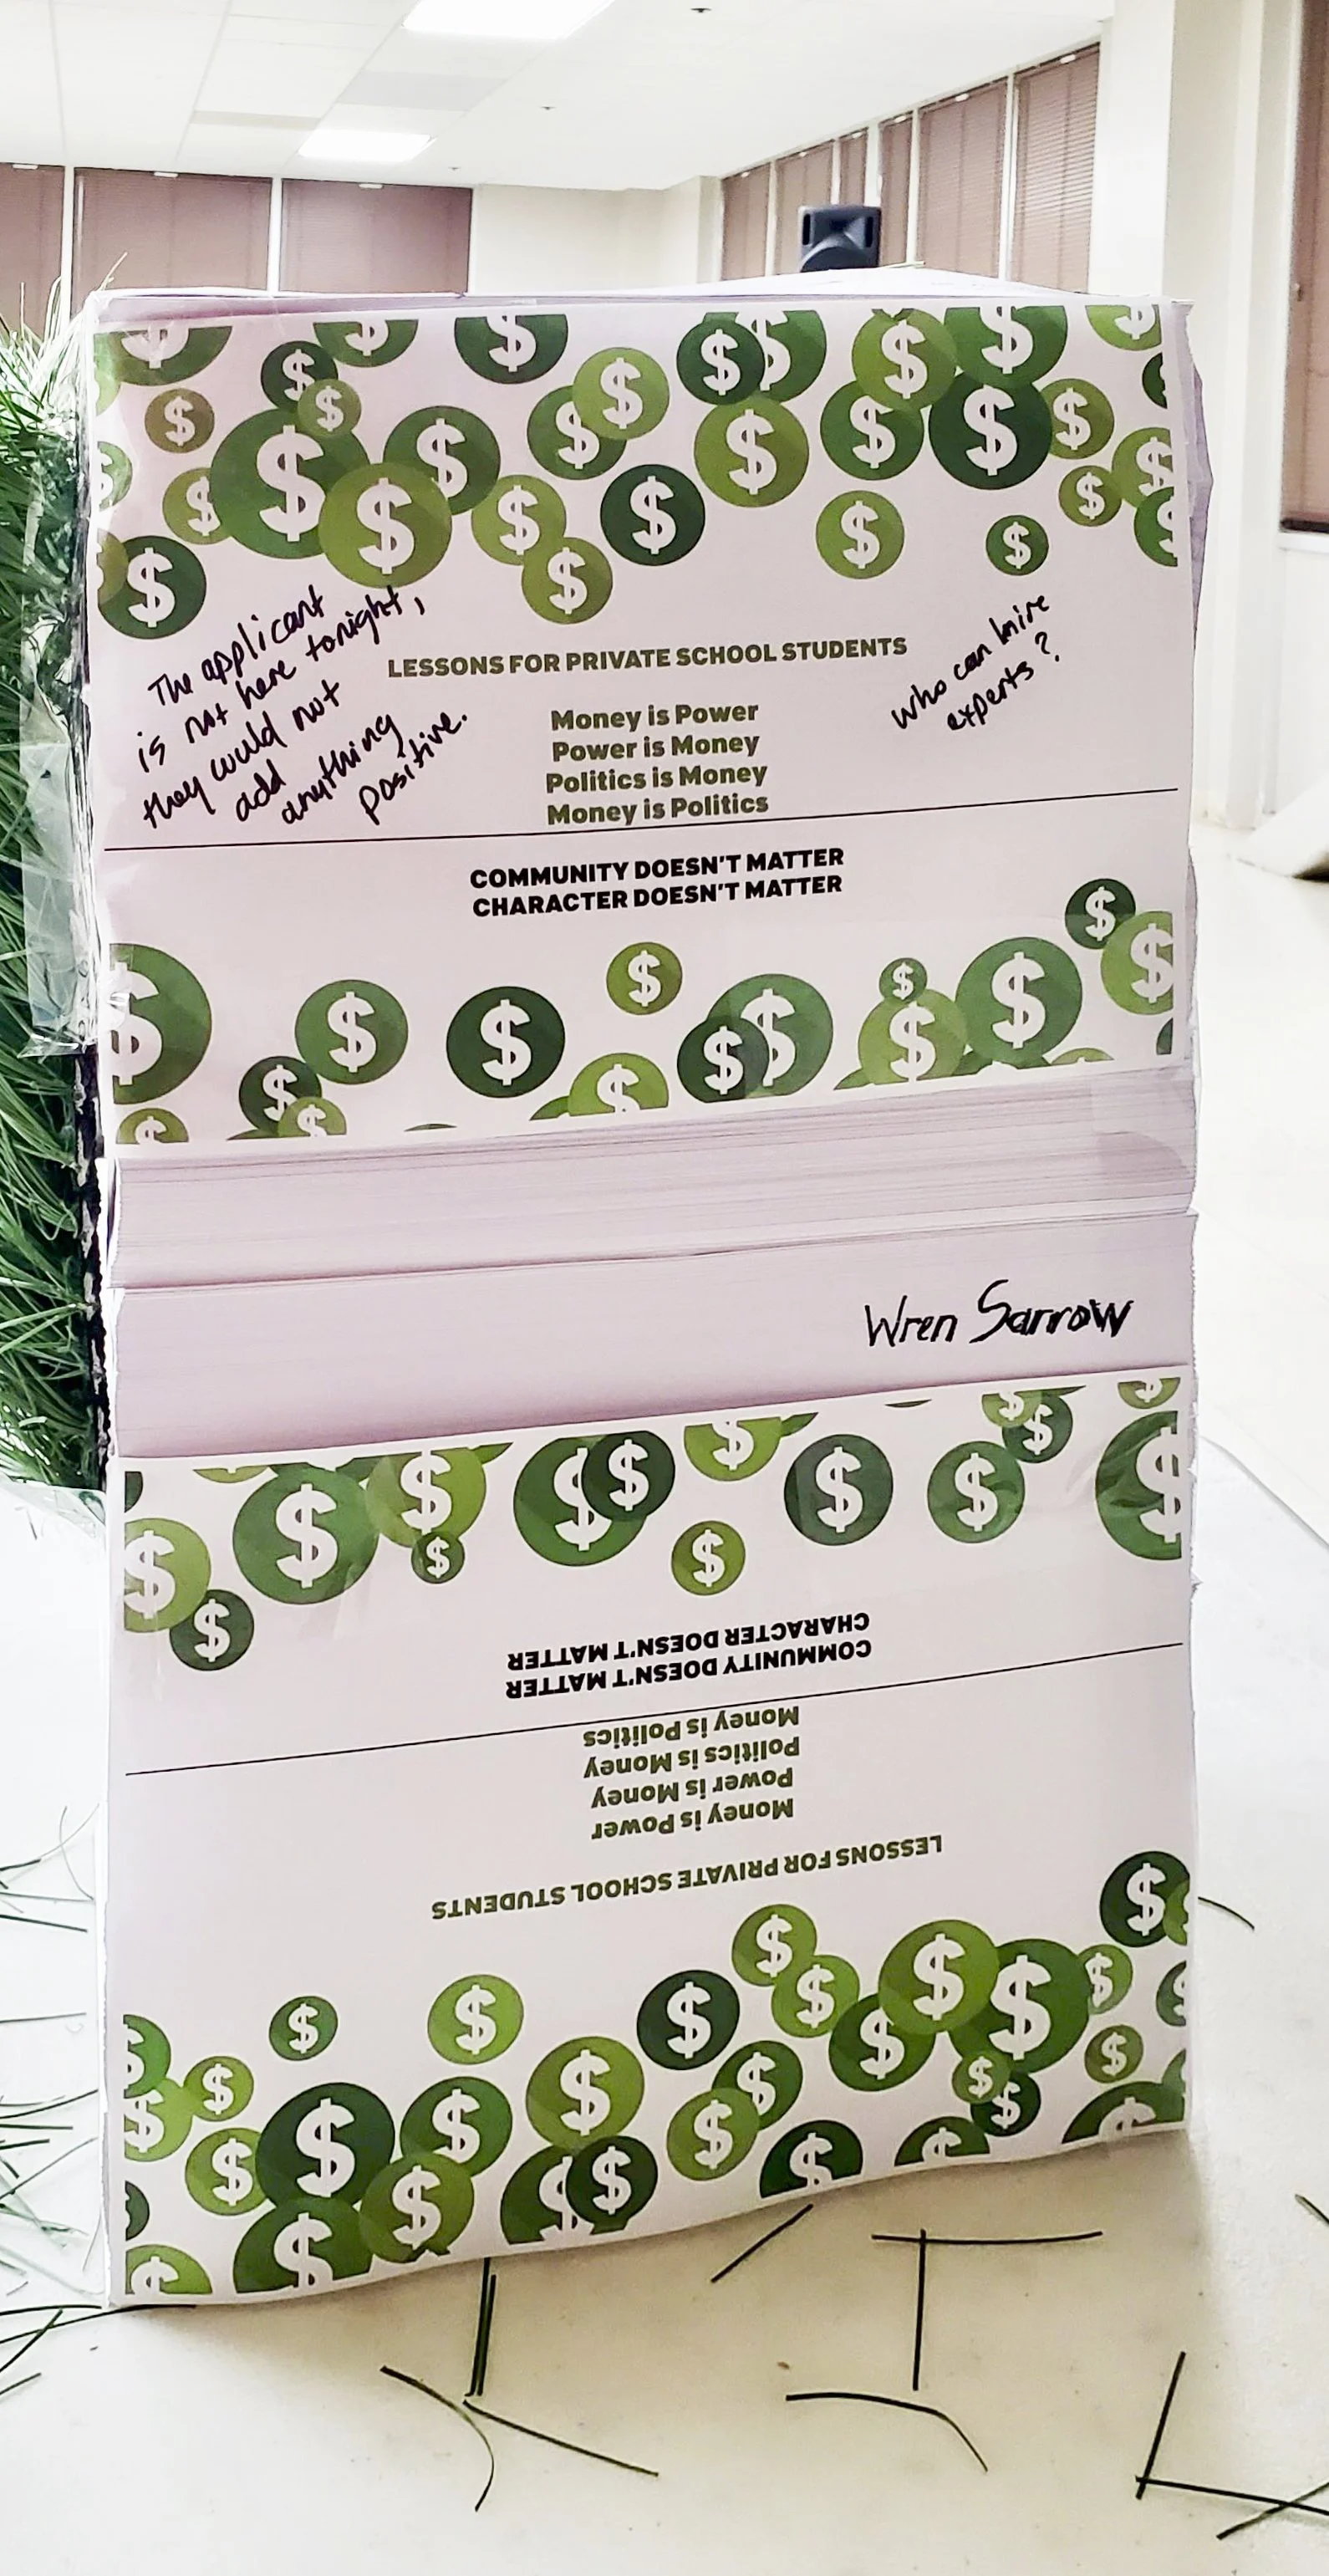 The applicant
is not here tonight,
they would not
add
anything
positive.
LESSONS FOR PRIVATE SCHOOL STUDENTS
who can hire
experts?
Money is Power
Power is Money
Politics is Money
Money is Politics
COMMUNITY DOESN'T MATTER
CHARACTER DOESN'T MATTER
Wren Sarrow
LESSONS FOR PRIVATE SCHOOL STUDENTS
Money is Power
Power is Money
Politics is Money
Money is Politics
COMMUNITY DOESN'T MATTER
CHARACTER DOESN'T MATTER